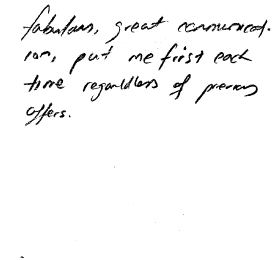 fabulous, great communicat.
ion, put me first each
time regardless of previous
offers.